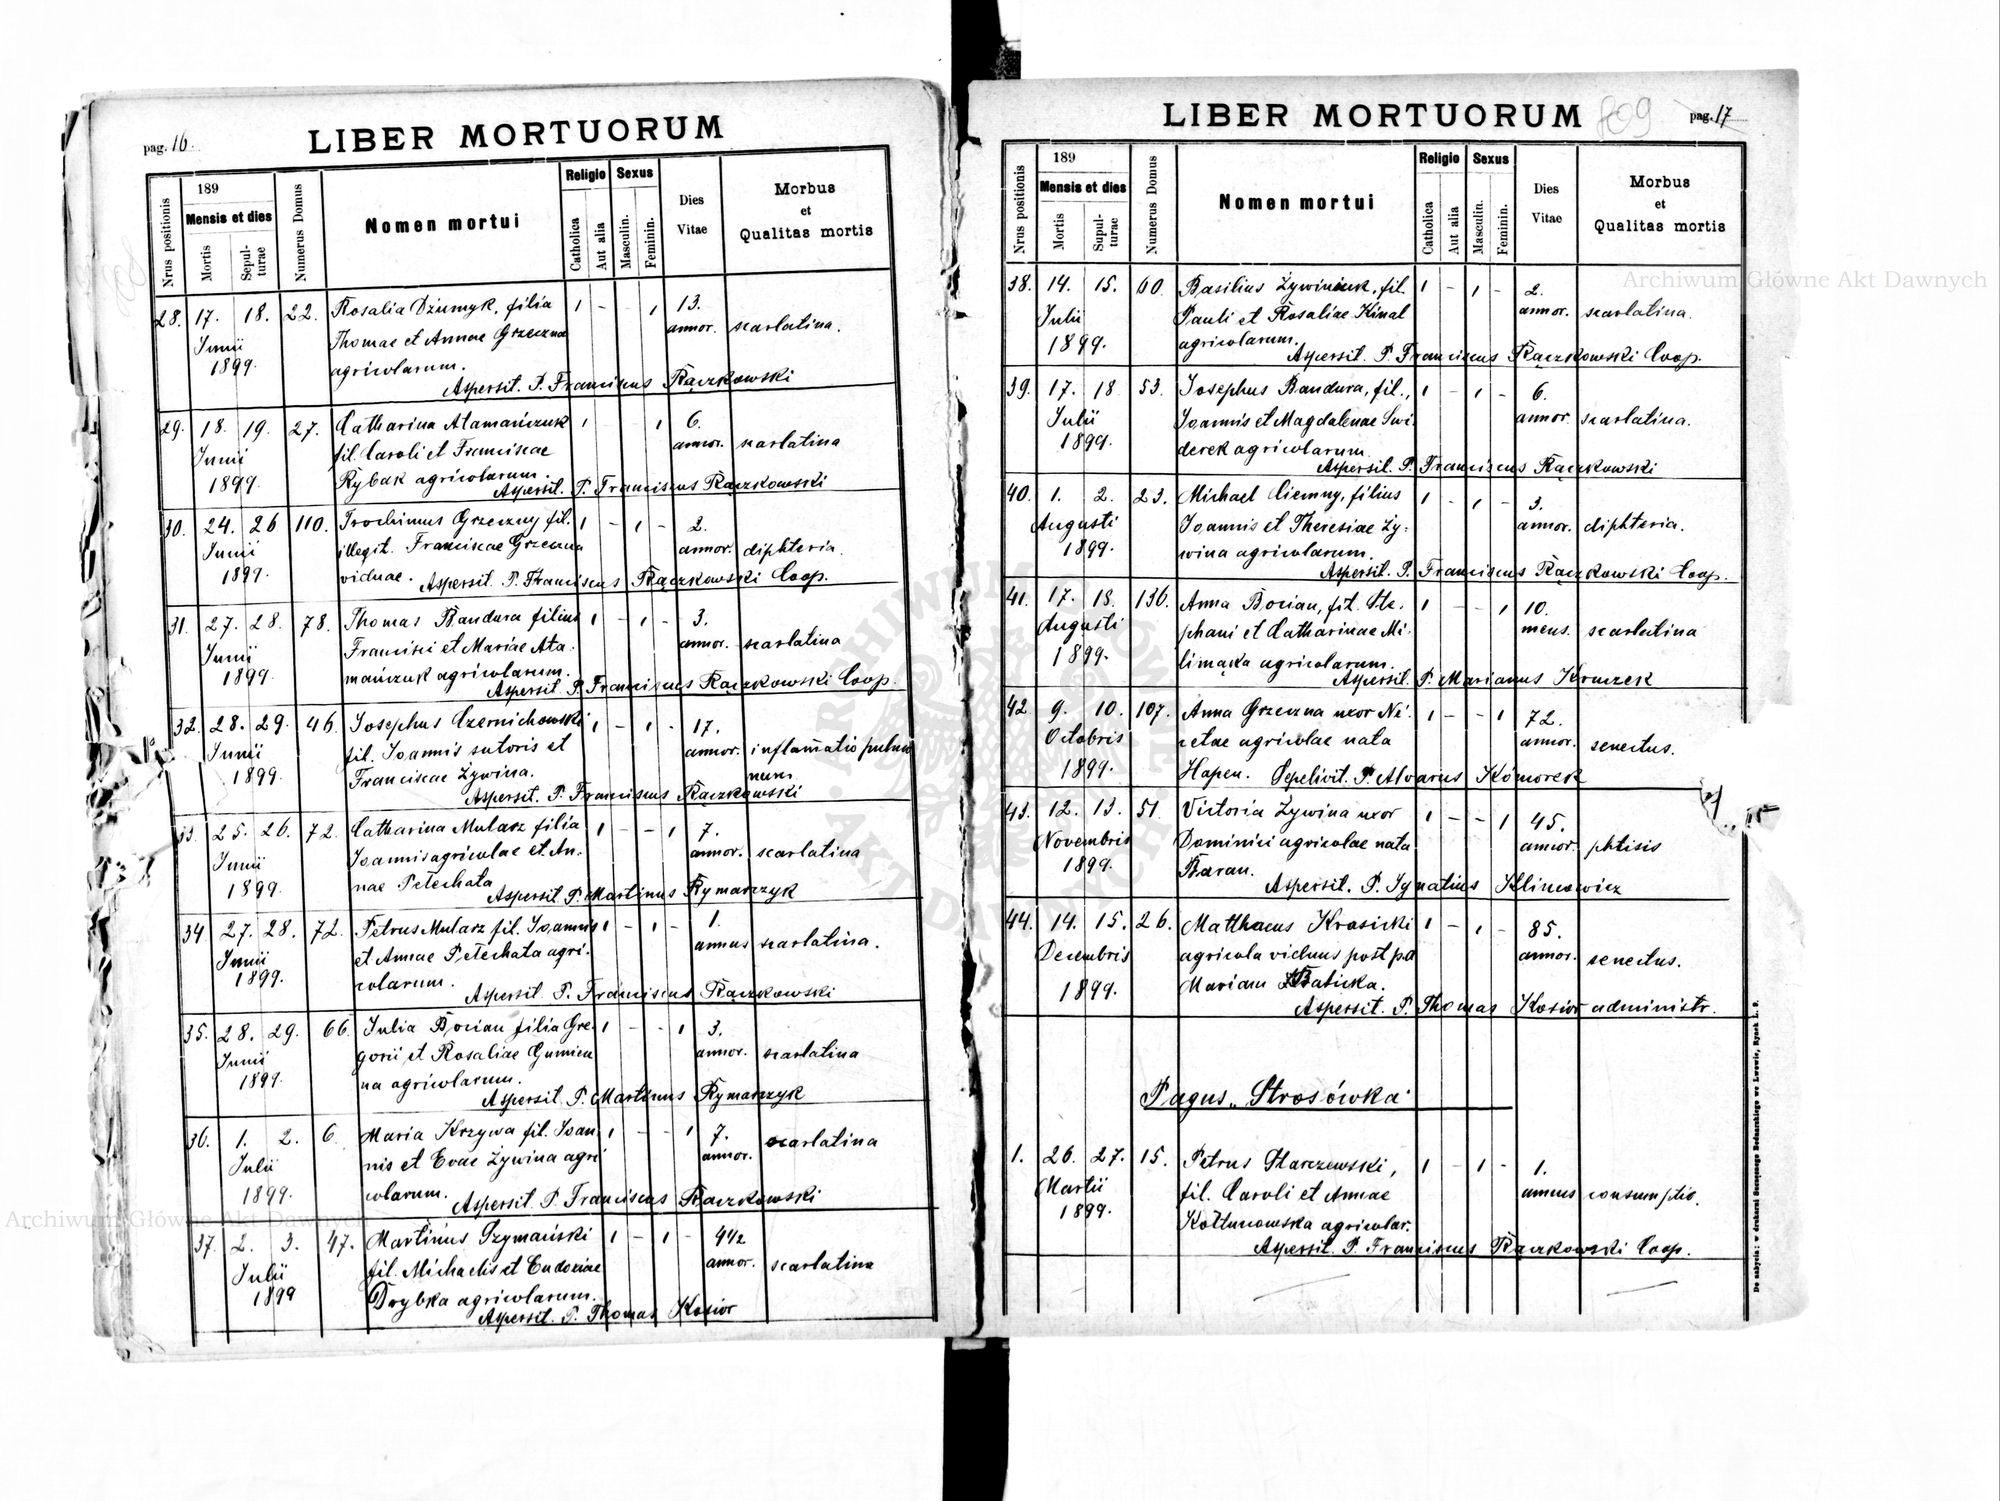 pag. 16.
LIBER MORTUORUM
Nrus positionis
189
Mensis et dies
Mortis
Sepulturae
Numerus Domus
Nomen mortui
Religio
Catholica
Aut alia
Sexus
Masculin.
Feminin.
Dies
Vitae
Morbus
et
Qualitas mortis
28. 17. 18. 22. Rosalia Dziumyk, filia 1 - 1 13.
Junii Thomae et Annae Grzeczna annor. scarlatina.
1899. agricolarum.
Aspersit. P. Franciscus Rączkowski
29. 18. 19. 27. Catharina Atamańczuk 1 1 6.
Junii fil. Caroli et Franciscae annor. scarlatina
1899. Rybak agricolarum.
Aspersit. P. Franciscus Rączkowski
30. 24. 26 110. Trochimus Grzeczny fil. 1 - 1 - 2.
Junii illegit. Franciscae Grzeczna annor. diphteria.
1899. viduae. Aspersit. P. Franciscus Rączkowski Coop.
31. 27. 28. 78. Thomas Bandura filius 1 - 1 - 3.
Junii Francisci et Mariae Ata- annor. scarlatina
1899. mańczuk agricolarum.
Aspersit. P. Franciscus Rączkowski Coop.
32. 28. 29. 46. Josephus Czernichowski 1 - 1 - 17.
Junii fil. Joannis sutoris et annor. inflamatio pulmo
1899. Franciscae Żywina. num
Aspersit. P. Franciscus Rączkowski
33. 25. 26. 72. Catharina Mularz filia 1 - - 1 7.
Junii Joannis agricolae et An- annor. scarlatina
1899. nae Petechata
Aspersit P. Martinus Rymarczyk
34. 27. 28. 72. Petrus Mularz fil. Joannis 1 - 1 - 1.
Junii et Annae Petechata agri- annus scarlatina.
1899. colarum.
Aspersit. P. Franciscus Rączkowski
35. 28. 29. 66. Julia Bocian filia Gre- 1 - - 1 3.
Junii gorii et Rosaliae Gumien annor. scarlatina
1899. na agricolarum.
Aspersit. P. Martinus Rymarczyk
36. 1. 2. 6. Maria Krzywa fil. Joan 1 - - 1 7. scarlatina
Julii nis et Evae Żywina agri annor.
1899. colarum. Aspersit. P. Franciscus Rączkowski
37. 2. 3. 47. Martinus Szymański 1 - 1 - 4 1/2
Julii fil. Michaelis et Eudoxiae annor. scarlatina
1899 Drybka agricolarum.
Aspersit. P. Thomas Kosior
LIBER MORTUORUM
809
pag. 17
Nrus positionis
189
Mensis et dies
Mortis
Supulturae
Numerus Domus
Nomen mortui
Religio
Catholica
Aut alia
Sexus
Masculin.
Feminin.
Dies
Vitae
Morbus
et
Qualitas mortis
38. 14. 15. 60. Basilius Żywiniuk, fil. 1 - 1 - 2.
Julii Pauli et Rosaliae Kinal annor. scarlatina.
1899. agricolarum.
Aspersit. P. Franciscus Rączkowski Coop.
39. 17. 18 53. Josephus Bandura, fil., 1 - 1 - 6.
Julii Joannis et Magdalenae Swi- annor. scarlatina.
1899. derek agricolarum.
Aspersit. P. Franciscus Rączkowski
40. 1. 2. 23. Michael Ciemny, filius 1 - 1 - 3.
Augusti Joannis et Theresiae Ży- annor. diphteria.
1899. wina agricolarum.
Aspersit. P. Franciscus Rączkowski Coop.
41. 17. 18. 136. Anna Bocian, fil. Ste- 1 - - 1 10.
Augusti phani et Catharinae Mi- mens. scarlatina
1899. limąka agricolarum.
Aspersit. P. Marianus Kruczek
42. 9. 10. 107. Anna Grzeczna uxor Ni- 1 - - 1 72.
Octobris cetae agricolae nata annor. senectus.
1899. Hapen. Sepelivit. P. Alvarus Kómorek
43. 12. 13. 51. Victoria Żywina uxor 1 - - 1 45.
Novembris Dominici agricolae nata annor. phtisis
1899. Baran.
Aspersit. P. Ignatius Klimowicz
44. 14. 15. 26. Matthaeus Krasicki 1 - 1 - 85.
Decembris agricola viduus post pa annor. senectus.
1899. Mariam Baticka.
Aspersit. P. Thomas Kosior administr.
Pagus „Strosówka"
1. 26. 27. 15. Petrus Harczewski, 1 - 1 - 1.
Martii fil. Caroli et Annae annus consumptio.
1899. Kołtunowska agricolar.
Aspersit. P. Franciscus Rączkowski Coop.
Do nabycia: w drukarni Szczęsnego Bednarskiego we Lwowie, Rynek L. 9.
Archiwum Główne Akt Dawnych
Archiwum Główne Akt Dawnych
ARCHIWUM GŁÓWNE AKT DAWNYCH